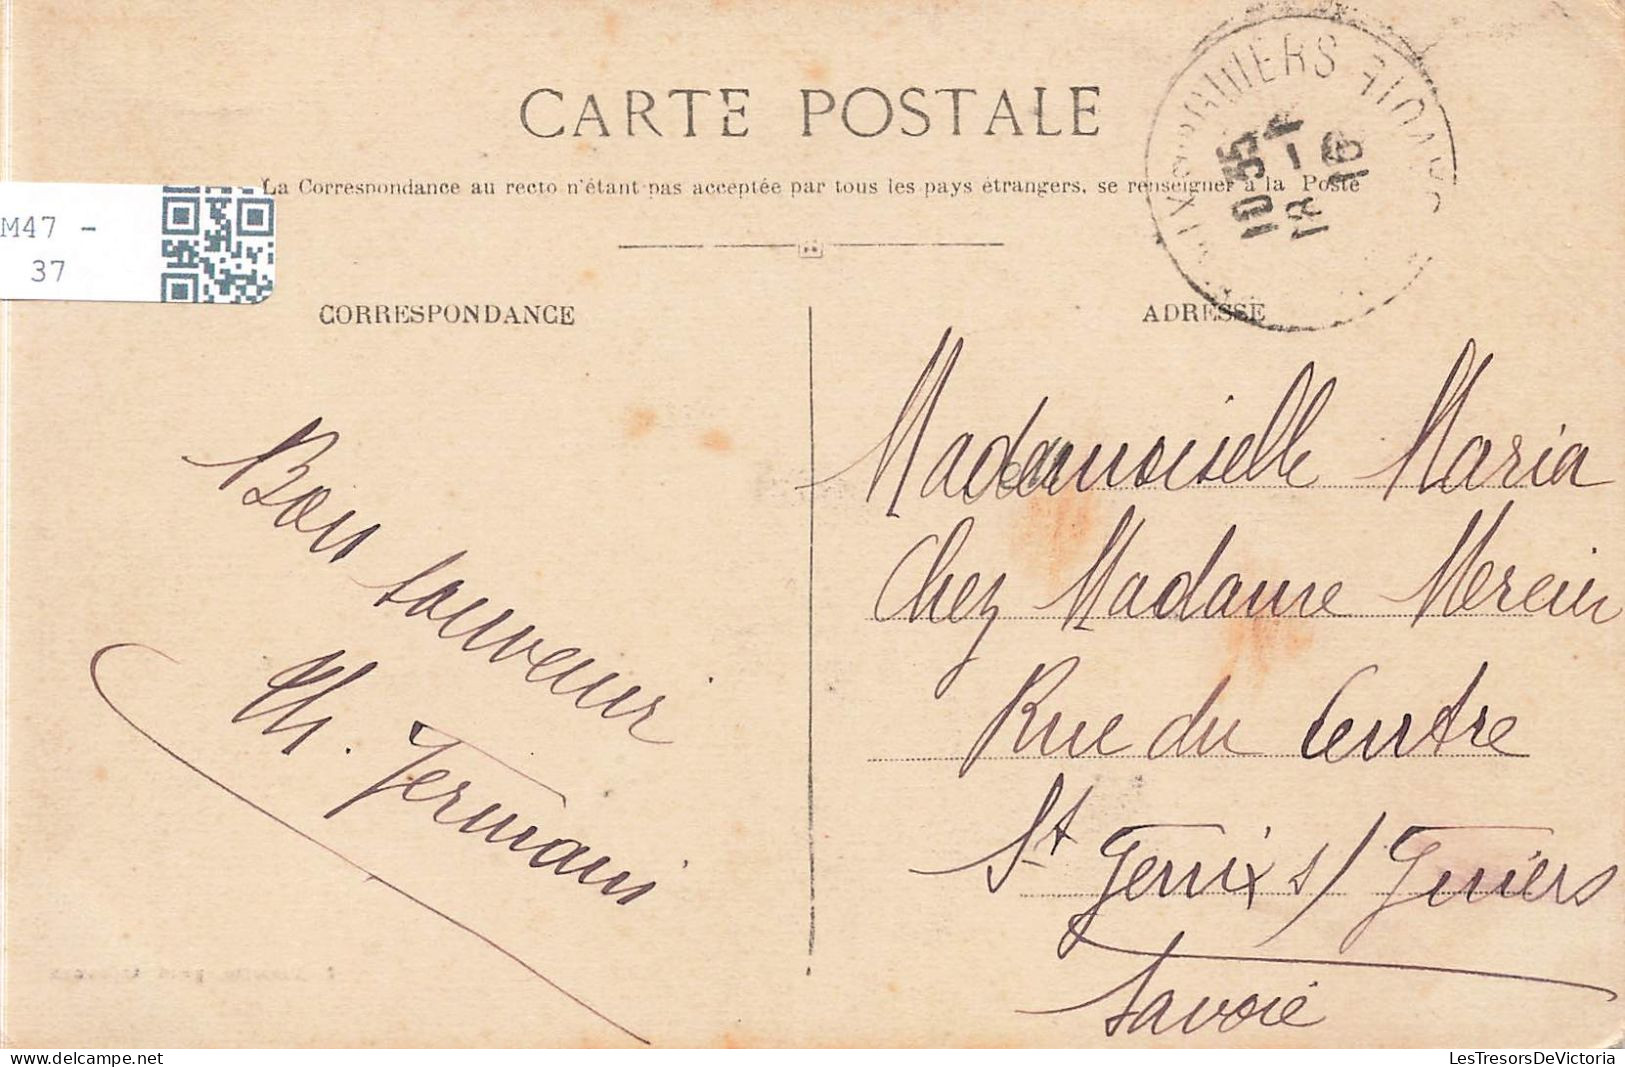 CARTE POSTALE
La Correspondance au recto n'étant pas acceptée par tous les pays étrangers, se renseigner à la Poste
M47 -
37
CORRESPONDANCE
ADRESSE
GUIERS
10 35
18 - 1
16
Bon souvenir
Th. Germain
Mademoiselle Maria
Chez Madame Mercier
Rue du Centre
St Genix s/ Guiers
Savoie
LesTresorsDeVictoria